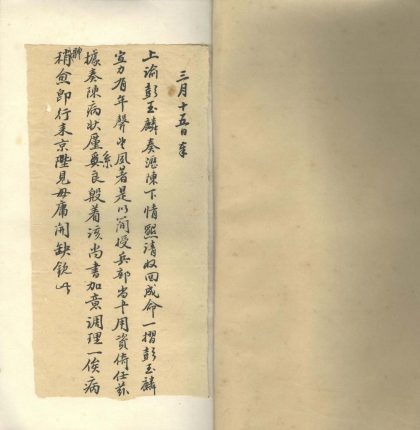 三月十五日奉
上諭彭玉麟奏瀝陳下情懇請收回成命一摺彭玉麟
宣力有年聲望夙著是以簡授兵部尚书用資倚任茲
據奏陳病狀廑系良殷着該尚書加意調理一俟病
稍愈即行来京陛見毋庸開缺欽此